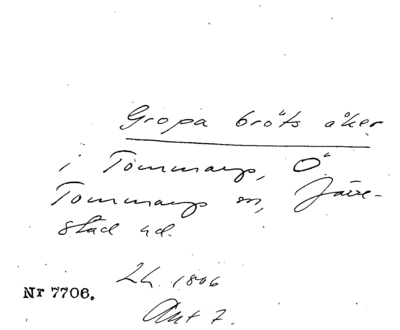 Gropa bröts åker
i Tommarp, Ö.
Tommarps sn, Järre-
stad hd.
LL 1806
Nr 7706.
Akt 7.